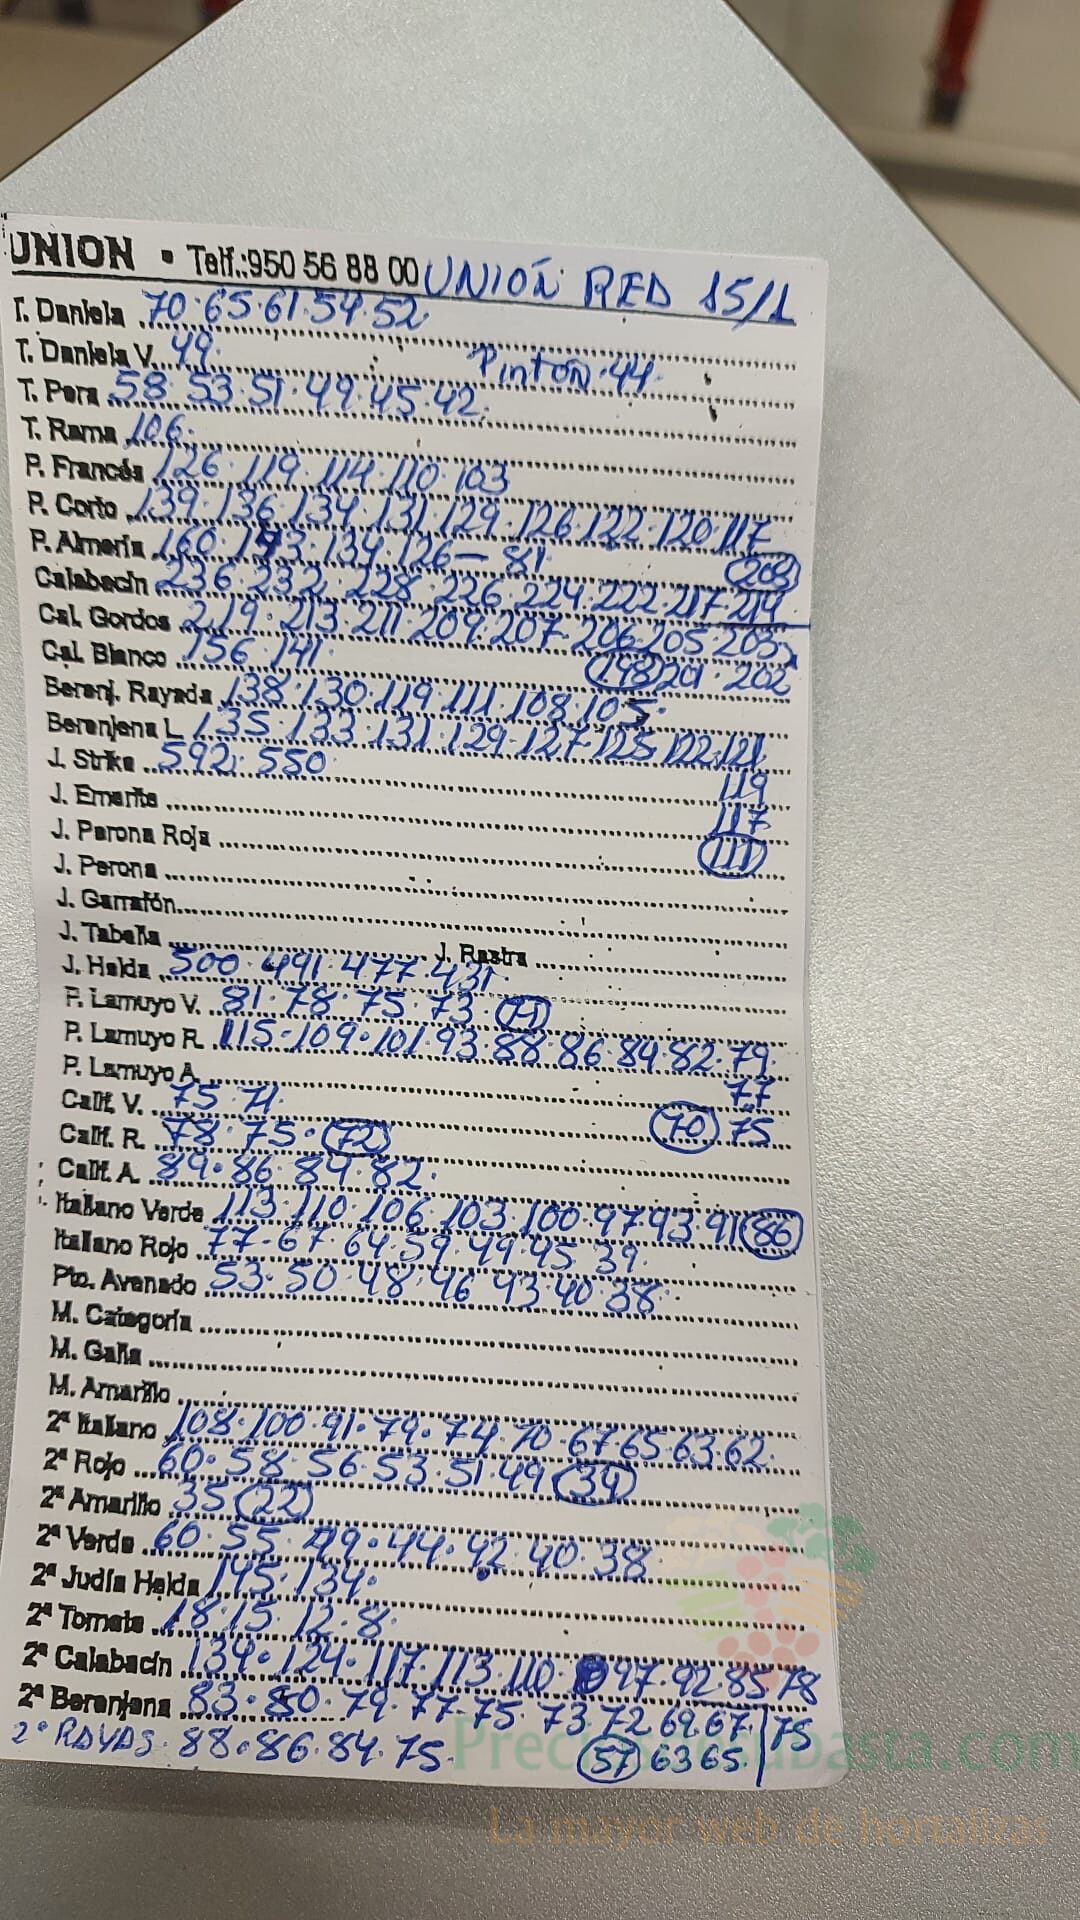 UNION • Telf.:950 56 88 00 UNIÓN RED 15/1
T. Daniela 70·65·61·54·52
T. Daniela V. 49. Pintón·44.
T. Pera 58·53·51·49·45·42.
T. Rama 106.
P. Francés 126·119·114·110·103
P. Corto 139·136·134·131·129·126·122·120·117
P. Almería 160·143·134·126—81· (208)
Calabacín 236·232·228·226·224·222·217·214
Cal. Gordos 219·213·211·209·207·206·205·203
Cal. Blanco 156·141· (198) 201·202
Berenj. Rayada 138·130·119·111·108·105·
Berenjena L. 135·133·131·129·127·125 122·121
J. Strike 592·550 119
J. Emerite 117
J. Perona Roja (111)
J. Perona
J. Garrafón
J. Tabella J. Rastra
J. Helda 500·491·477·431·
P. Lamuyo V. 81·78·75·73·(71)
P. Lamuyo R. 115·109·101·93·88·86·84·82·79·
P. Lamuyo A. 77
Calif. V. 75·71· (70) 75
Calif. R. 78·75·(72)
Calif. A. 89·86·84·82·
Italiano Verde 113·110·106·103·100·97·93·91 (86)
Italiano Rojo 77·67·64·59·49·45·39·
Pto. Avanado 53·50·48·46·43·40·38·
M. Categoría
M. Galia
M. Amarillo
2ª Italiano 108·100·91·79·74·70·67·65·63·62·
2ª Rojo 60·58·56·53·51·49 (34)
2ª Amarillo 35 (22)
2ª Verde 60·55·49·44·42·40·38
2ª Judía Helda 145·134·
2ª Tomate 18·15·12·8·
2ª Calabacín 134·124·117·113·110· 97·92·85 78
2ª Berenjena 83·80·79·77·75·73 72 69·67· 75
2ª RAYAS· 88·86·84·75· (57) 63 65
Preciosubasta.com
La mayor web de hortalizas